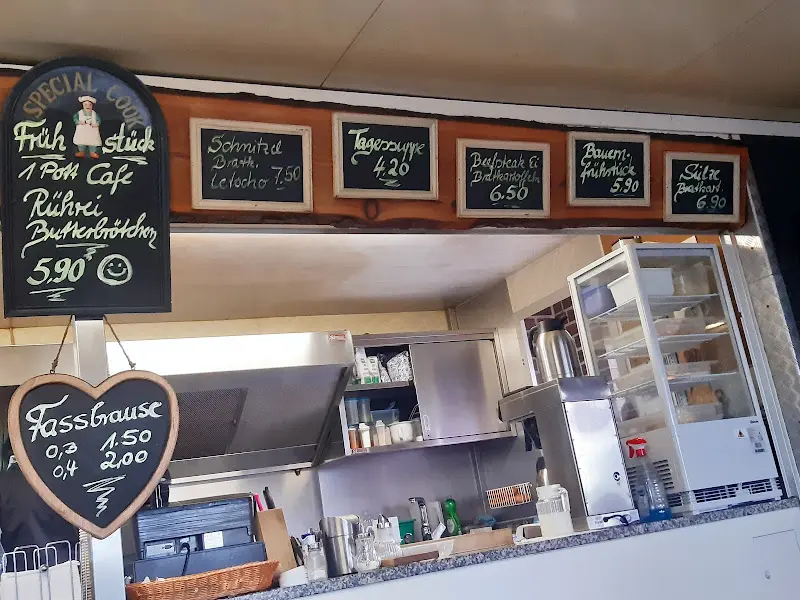 SPECIAL COOK
Früh stück
1 Pott Cafe
Rührei
Butterbrötchen
5,90
Fassbrause
0,3 1.50
0,4 2,00
Schnitzel
Bratk.
Letscho 7.50
Tagessuppe
4.20
Beefsteak Ei
Bratkartoffeln
6.50
Bauern-
frühstück
5,90
Sülze
Bratkart.
6.90